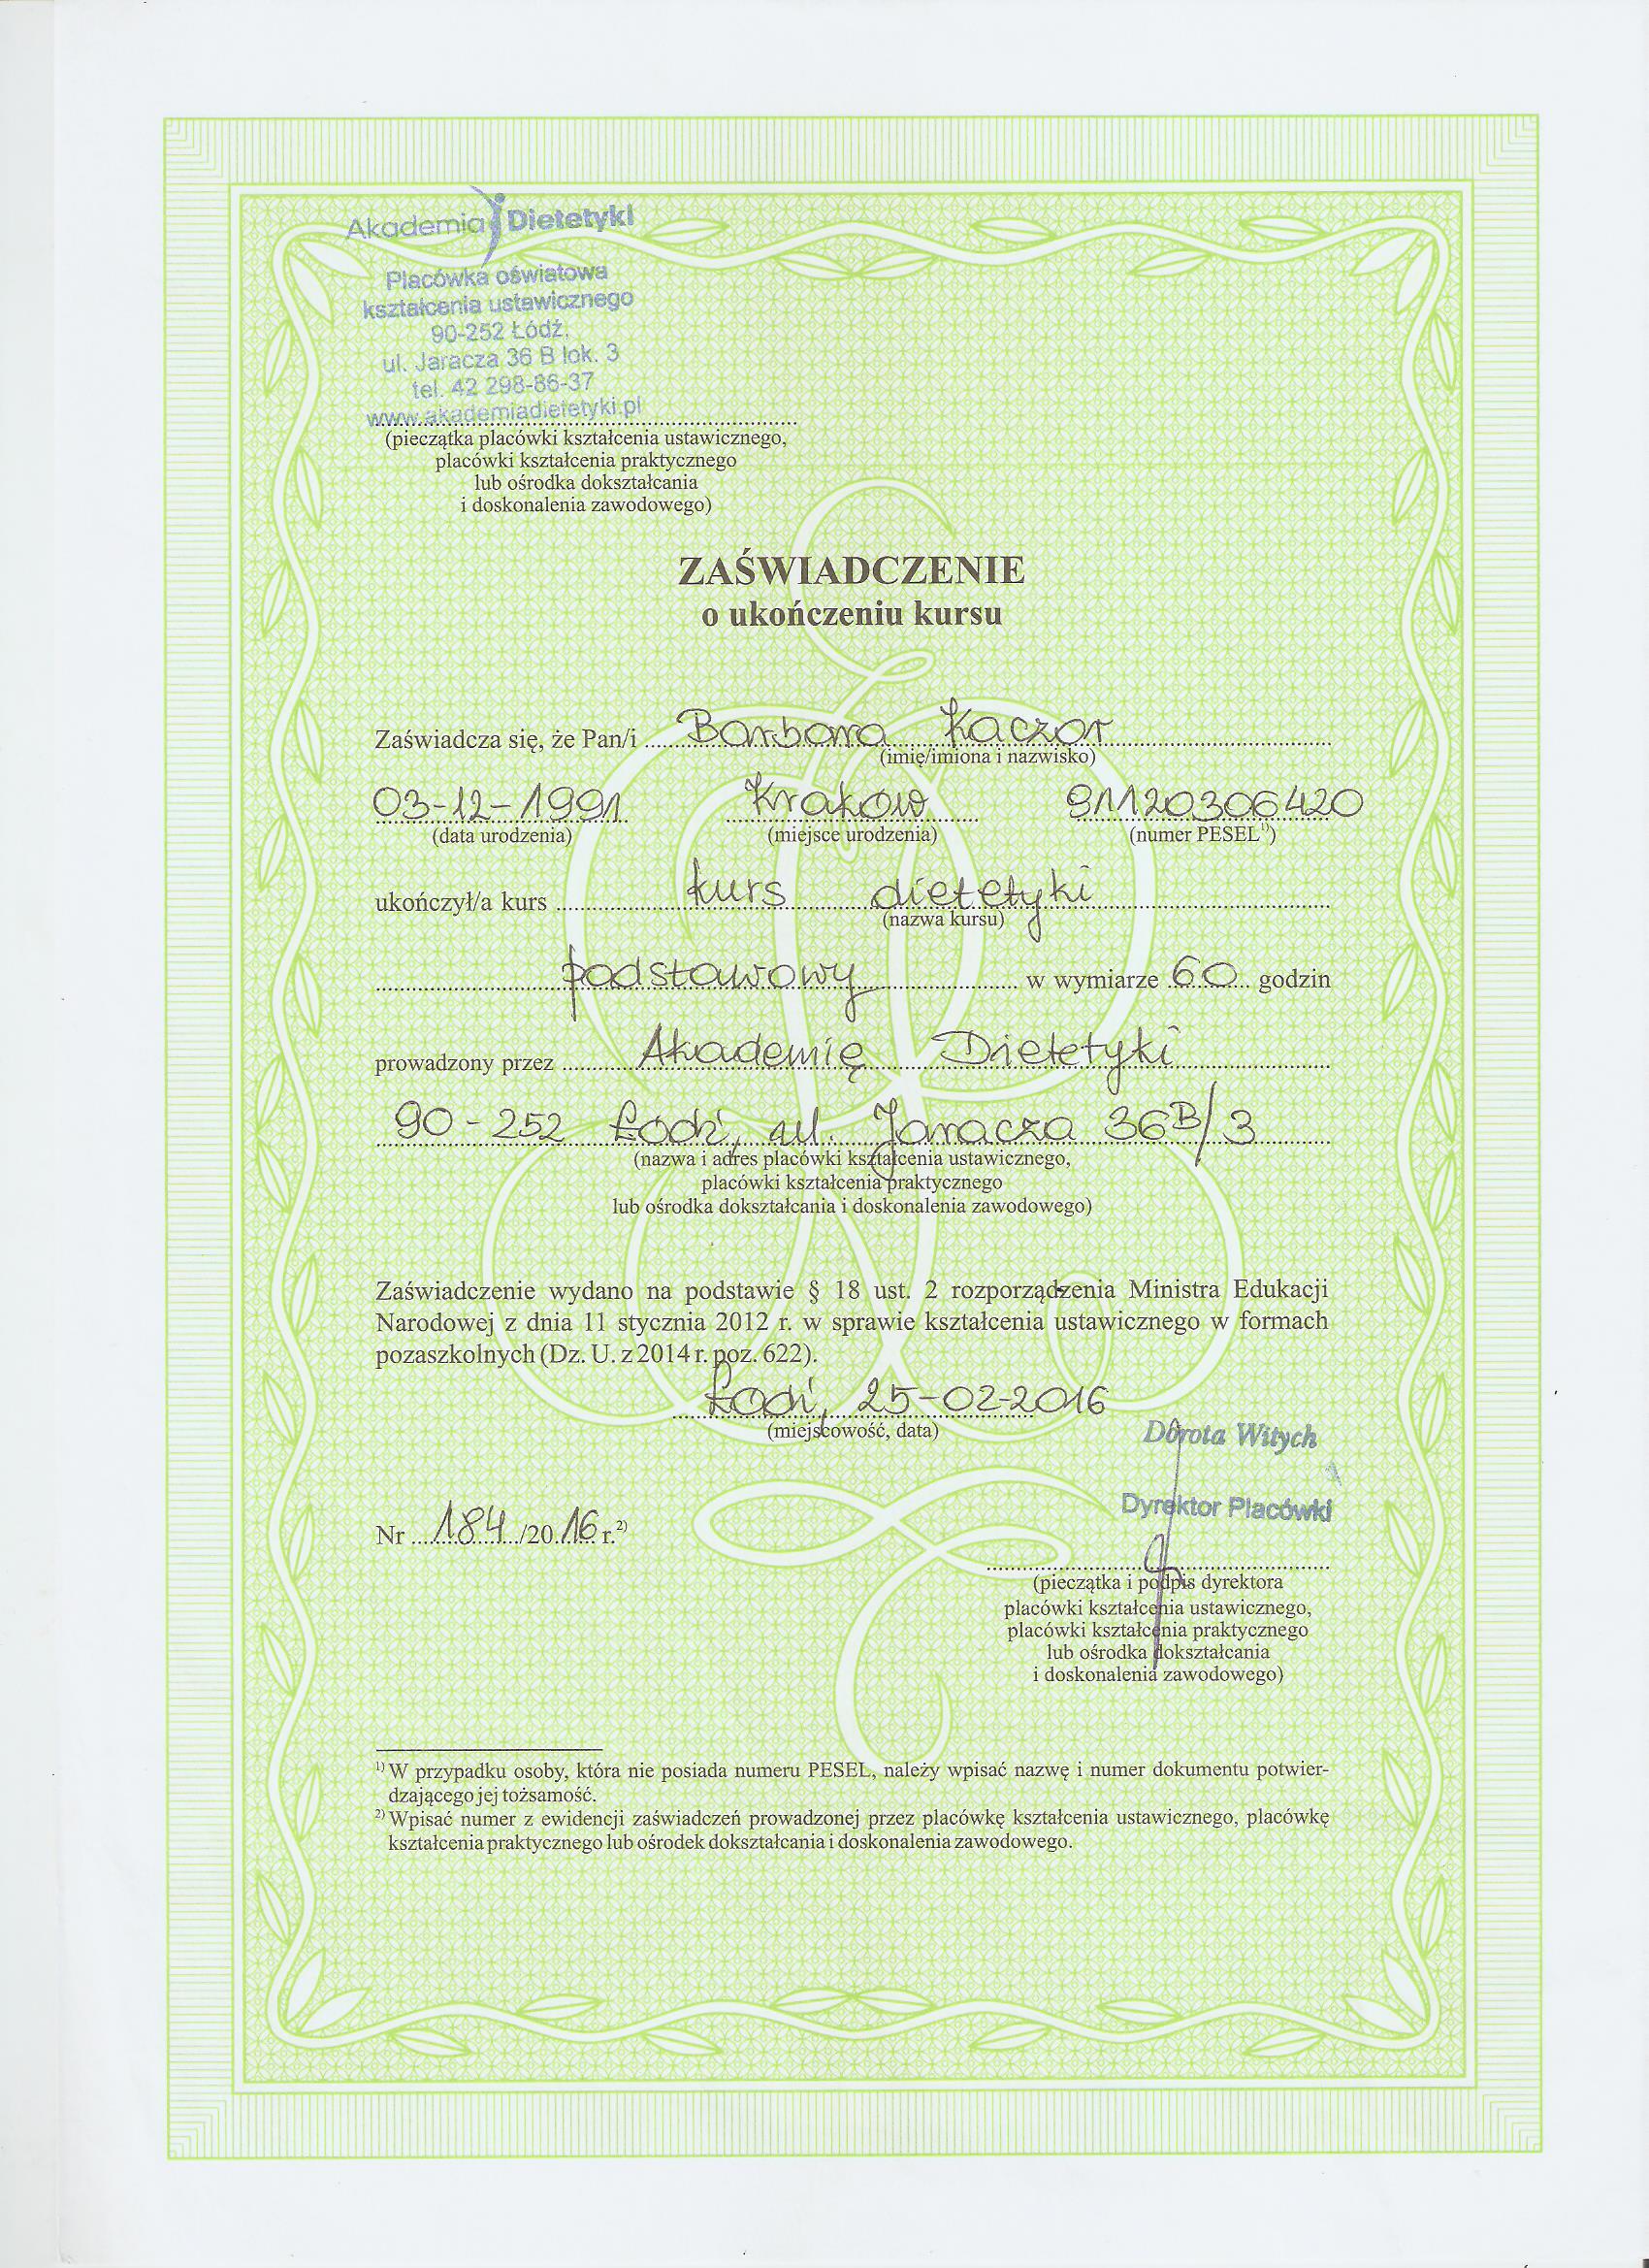 Akademia Dietetyki
Placówka oświatowa
kształcenia ustawicznego
90-252 Łódź,
ul. Jaracza 36 B lok. 3
tel. 42 298-86-37
www.akademiadietetyki.pl
(pieczątka placówki kształcenia ustawicznego,
placówki kształcenia praktycznego
lub ośrodka dokształcania
i doskonalenia zawodowego)
ZAŚWIADCZENIE
o ukończeniu kursu
Zaświadcza się, że Pan/i Barbara Kaczor
(imię/imiona i nazwisko)
03-12-1991 Kraków 91120306420
(data urodzenia) (miejsce urodzenia) (numer PESEL¹⁾)
ukończył/a kurs kurs dietetyki
(nazwa kursu)
podstawowy w wymiarze 60 godzin
prowadzony przez Akademię Dietetyki
90-252 Łódź, ul. Jaracza 36B/3
(nazwa i adres placówki kształcenia ustawicznego,
placówki kształcenia praktycznego
lub ośrodka dokształcania i doskonalenia zawodowego)
Zaświadczenie wydano na podstawie § 18 ust. 2 rozporządzenia Ministra Edukacji
Narodowej z dnia 11 stycznia 2012 r. w sprawie kształcenia ustawicznego w formach
pozaszkolnych (Dz. U. z 2014 r. poz. 622).
Łódź, 25-02-2016
(miejscowość, data)
Dorota Witych
Dyrektor Placówki
Nr 184/2016 r.²⁾
(pieczątka i podpis dyrektora
placówki kształcenia ustawicznego,
placówki kształcenia praktycznego
lub ośrodka dokształcania
i doskonalenia zawodowego)
¹⁾ W przypadku osoby, która nie posiada numeru PESEL, należy wpisać nazwę i numer dokumentu potwier-
dzającego jej tożsamość.
²⁾ Wpisać numer z ewidencji zaświadczeń prowadzonej przez placówkę kształcenia ustawicznego, placówkę
kształcenia praktycznego lub ośrodek dokształcania i doskonalenia zawodowego.